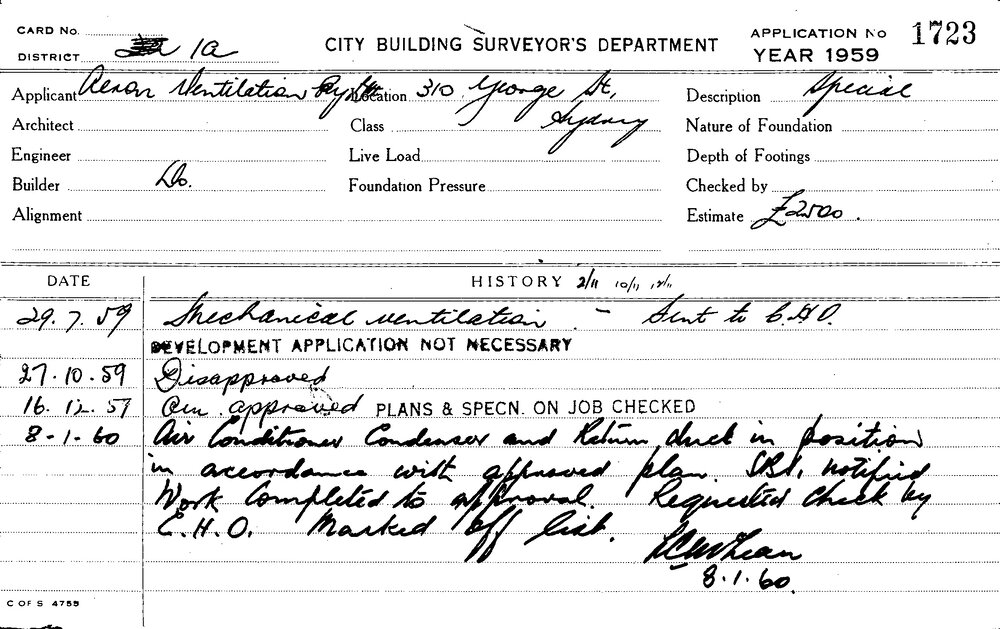 CARD No.
DISTRICT 1a
CITY BUILDING SURVEYOR'S DEPARTMENT
APPLICATION No 1723
YEAR 1959
Applicant Aeron Ventilation Pty Ltd Location 310 George St, Description Special
Architect Class Sydney Nature of Foundation
Engineer Live Load Depth of Footings
Builder Do. Foundation Pressure Checked by
Alignment Estimate £2500.
DATE HISTORY 2/11 10/11
29.7.59 Mechanical ventilation - Sent to C.H.O.
DEVELOPMENT APPLICATION NOT NECESSARY
27.10.59 Disapproved
16.12.59 approved PLANS & SPECN. ON JOB CHECKED
8-1-60 Air Conditioner Condenser and Return duct in position
in accordance with approved plan. notified
Work Completed to approval. Requested check by
C.H.O. Marked off list.
8.1.60.
C OF S 4759